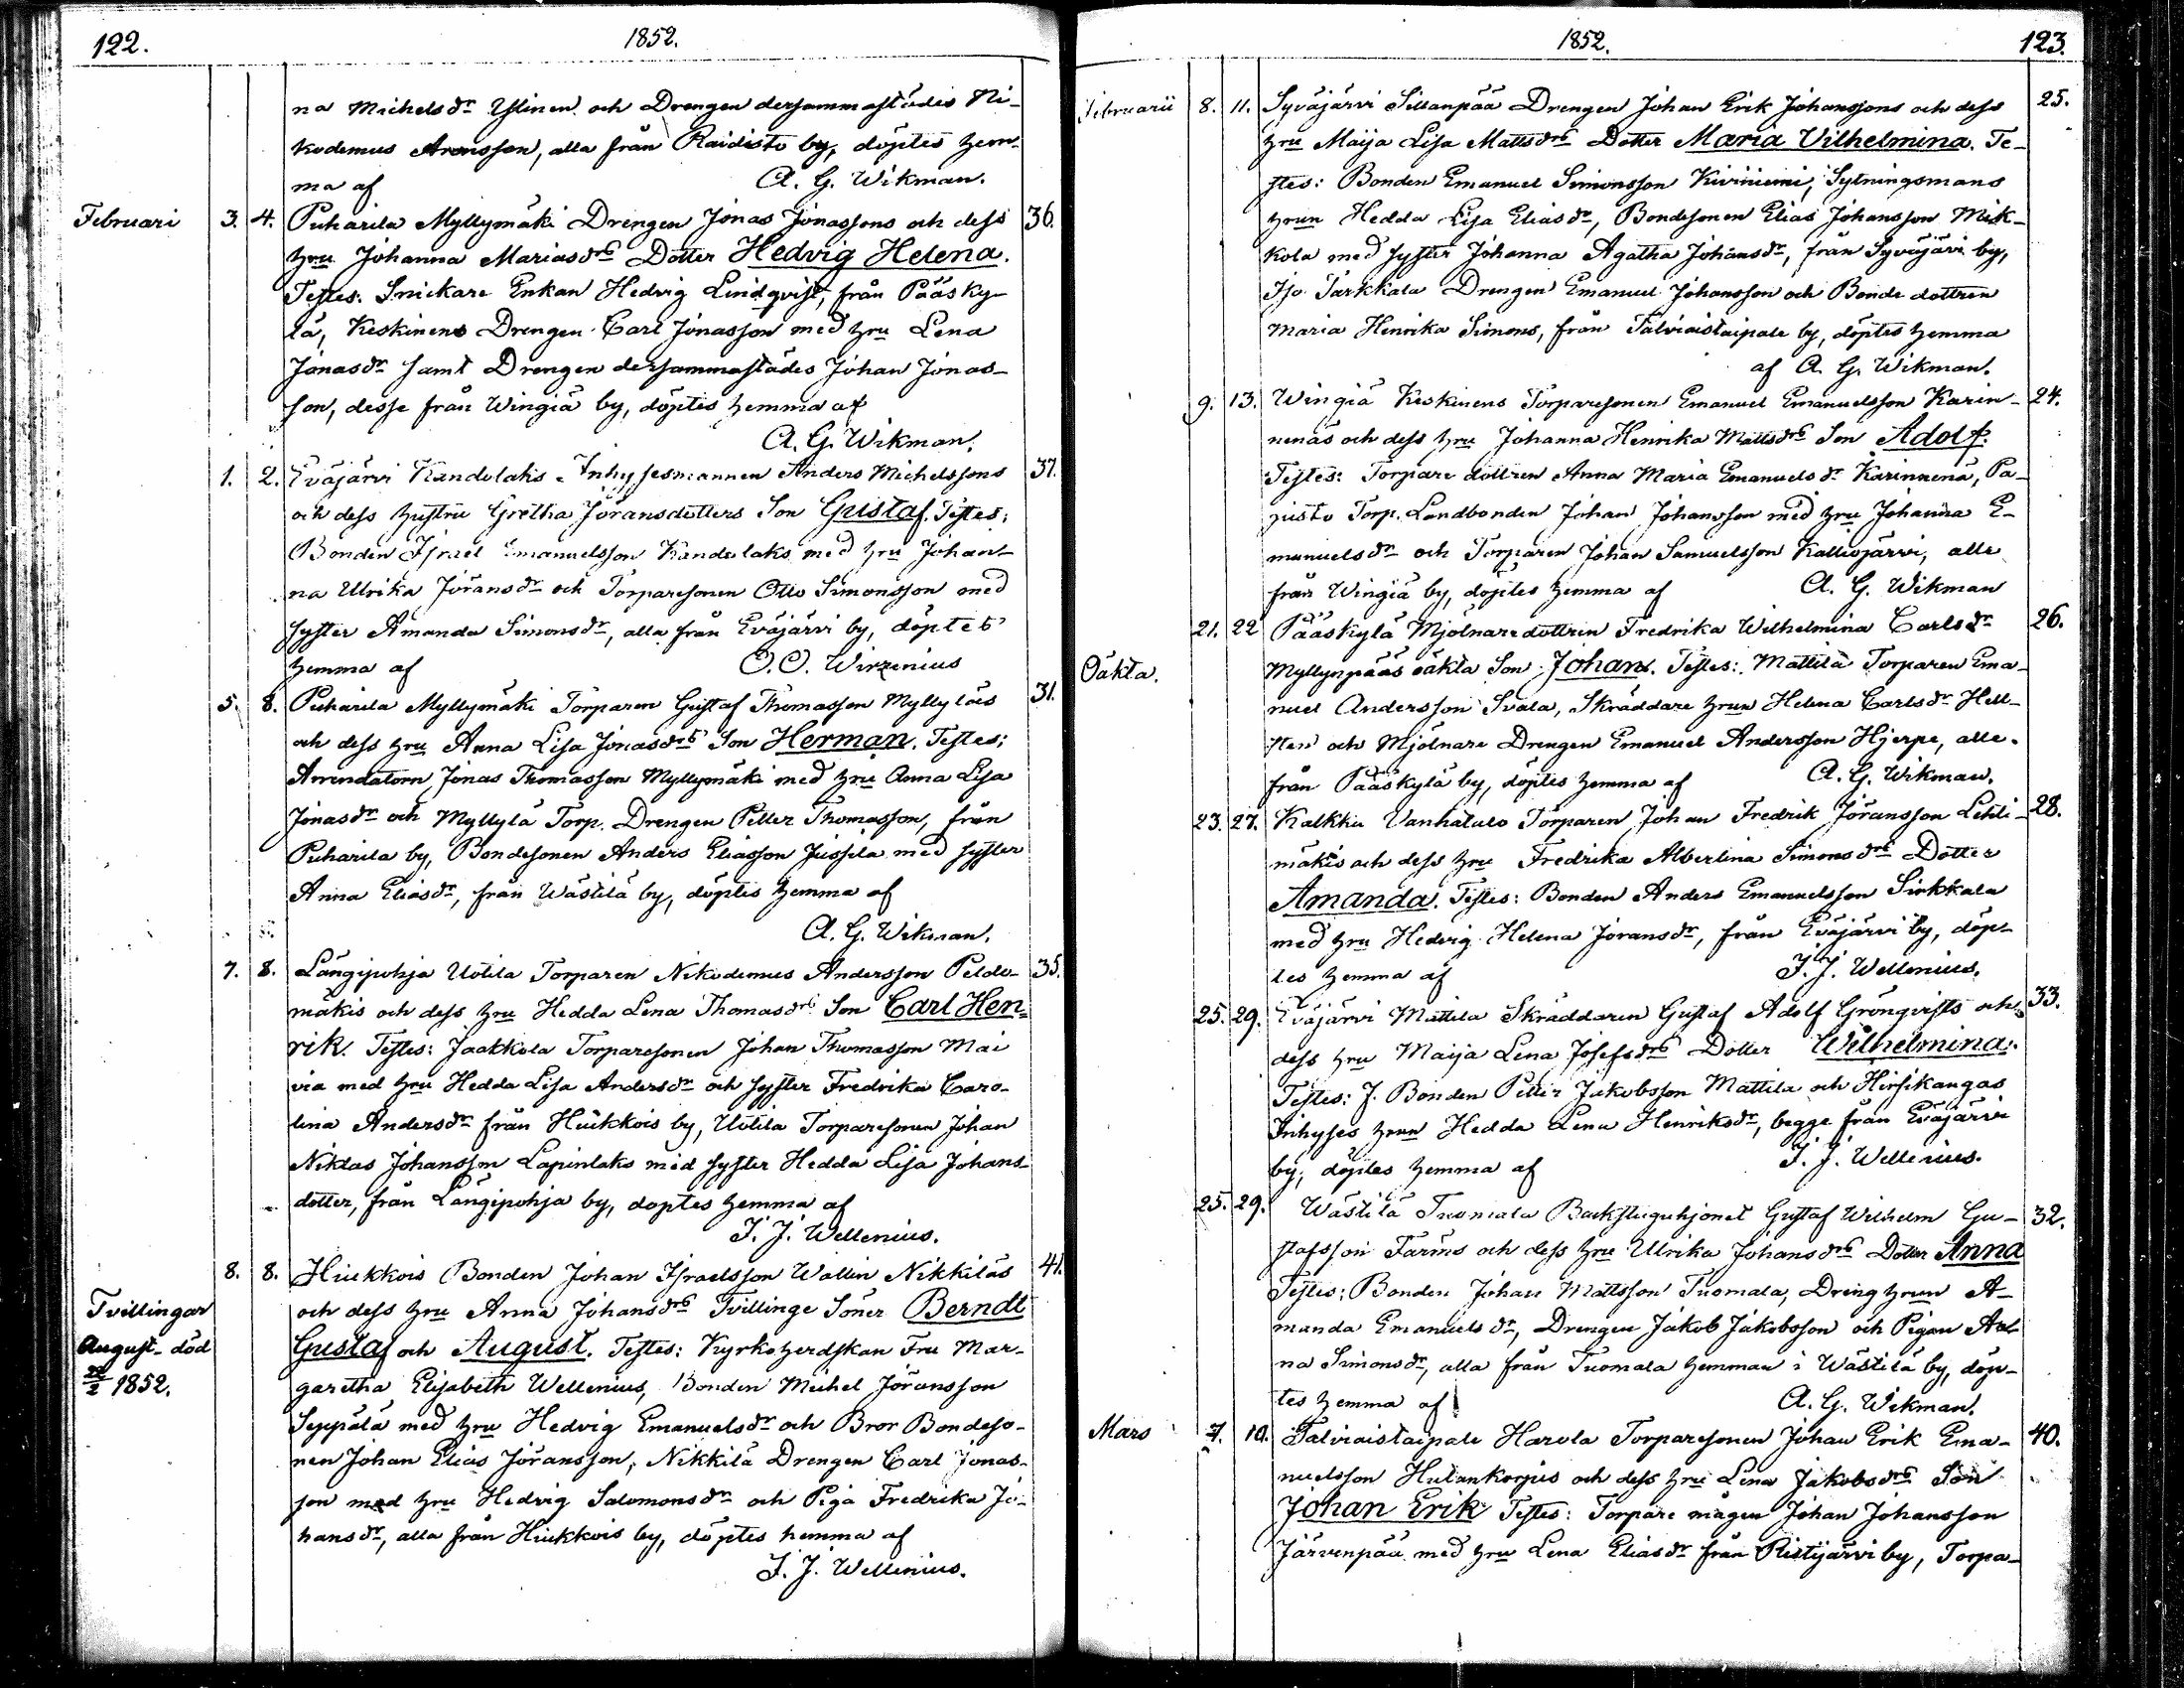 122. 1852.
na Michelsdr Ylinen och Drengen dersammastädes Ni-
kodemus Aronsson, alla från Raidisto by, döptes hem-
ma af A. G. Wikman.
Februari 3. 4. Puharila Myllymäki Drengen Jonas Jonassons och dess 36.
hru Johanna Mariasdrs Dotter Hedvig Helena.
Testes: Snickare Enkan Hedvig Lindqvist, från Pääsky-
lä, Keskinens Drengen Carl Jonasson med hru Lena
Jonasdr samt Drengen dersammastädes Johan Jonas-
son, desse från Wingiä by, döptes hemma af
A. G. Wikman.
1. 2. Eväjärvi Kandolaks Inhysesmannen Anders Michelssons 37.
och dess hustru Gretha Jöransdotters Son Gustaf. Testes:
Bonden Israel Emanuelsson Kandolaks med hru Johan-
na Ulrika Jöransdr och Torparesonen Otto Simonsson med
syster Amanda Simonsdr, alla från Eväjärvi by, döptes
hemma af O. O. Wirzenius
5. 8. Puharila Myllymäki Torparen Gustaf Thomasson Myllyläs 31.
och dess hru Anna Lisa Jonasdrs Son Herman. Testes:
Arrendatorn Jonas Thomasson Myllymäki med hru Anna Lisa
Jonasdr och Myllylä Torp. Drengen Petter Thomasson, från
Puharila by, Bondesonen Anders Eliasson Jussila med syster
Anna Eliasdr, från Wästilä by, döptes hemma af
A. G. Wikman.
7. 8. Längipohja Uotila Torparen Nikodemus Andersson Peldo- 35.
mäkis och dess hru Hedda Lena Thomasdrs Son Carl Hen-
rik. Testes: Jaakkola Torparesonen Johan Thomasson Mai
via med hru Hedda Lisa Andersdr och syster Fredrika Caro-
lina Andersdr från Hiukkois by, Uotila Torparesonen Johan
Niklas Johansson Lapinlaks med syster Hedda Lisa Johans-
dotter, från Längipohja by, döptes hemma af
J. J. Wellenius.
8. 8. Hiukkois Bonden Johan Israelsson Wallin Nikkiläs 41.
Tvillingar och dess hru Anna Johansdrs Tvillinge Söner Berndt
August död Gustaf och August. Testes: Kyrkoherdskan Fru Mar-
22/2 1852. garetha Elisabeth Wellenius, Bonden Michel Jöransson
Seppälä med hru Hedvig Emanuelsdr och Bror Bondeso-
nen Johan Elias Jöransson, Nikkilä Drengen Carl Jonas-
son med hru Hedvig Salomonsdr och Piga Fredrika Jo-
hansdr, alla från Hiukkois by, döptes hemma af
J. J. Wellenius.
1852. 123.
Februarii 8. 11. Syväjärvi Sillanpää Drengen Johan Erik Johanssons och dess 25.
hru Maija Lisa Mattsdrs Dotter Maria Vilhelmina. Te-
stes: Bonden Emanuel Simonsson Kiviniemi, Sytningsmans
hrun Hedda Lisa Eliasdr, Bondesonen Elias Johansson Mik-
kola med syster Johanna Agatha Johansdr, från Syväjärvi by,
Iso Tarkkala Drengen Emanuel Johansson och Bonde dottren
Maria Henrika Simons, från Talviaistaipale by, döptes hemma
af A. G. Wikman.
9. 13. Wingiä Keskinens Torparesonen Emanuel Emanuelsson Karin- 24.
nenäs och dess hru Johanna Henrika Mattsdrs Son Adolf.
Testes: Torpare dottren Anna Maria Emanuelsdr Karinnenä, Pa-
justo Torp. Landbonden Johan Johansson med hru Johanna E-
manuelsdr och Torparen Johan Samuelsson Kalliojärvi, alle
från Wingiä by, döptes hemma af A. G. Wikman
21. 22 Pääskylä Mjölnaredottren Fredrika Wilhelmina Carlsdr 26.
Oäkta. Myllynpääs oäkta Son Johan. Testes: Mattila Torparen Ema-
nuel Andersson Svala, Skräddare hrun Helena Carlsdr Hell-
sten och Mjölnare Drengen Emanuel Andersson Hjerpe, alle
från Pääskylä by, döptes hemma af A. G. Wikman.
23. 27. Kalkku Vanhatalo Torparen Johan Fredrik Jöransson Lehti- 28.
mäkis och dess hru Fredrika Albertina Simonsdrs Dotter
Amanda. Testes: Bonden Anders Emanuelsson Sirkkala
med hru Hedvig Helena Jöransdr, från Eväjärvi by, döp-
tes hemma af J. J. Wellenius.
25. 29. Eväjärvi Mattila Skräddaren Gustaf Adolf Grönqvists och 33.
dess hru Maija Lena Josefsdrs Dotter Wilhelmina.
Testes: J. Bonden Petter Jakobsson Mattila och Hirsikangas
Inhyses hrun Hedda Lena Henriksdr, begge från Eväjärvi
by, döptes hemma af J. J. Wellenius.
25. 29. Wästilä Tuomala Backstuguhjonet Gustaf Wilhelm Gu- 32.
stafsson Farms och dess hru Ulrika Johansdrs Dotter Anna
Testes: Bonden Johan Mattsson Tuomala, Dreng hrun A-
manda Emanuelsdr, Drengen Jakob Jakobsson och Pigan An-
na Simonsdr, alla från Tuomala hemman i Wästilä by, döp-
tes hemma af A. G. Wikman.
Mars 7. 10. Talviaistaipale Harola Torparesonen Johan Erik Ema- 40.
nuelsson Hulankorpis och dess hru Lena Jakobsdrs Son
Johan Erik Testes: Torpare mågen Johan Johansson
Järvenpää med hru Lena Eliasdr från Ristijärvi by, Torpa-